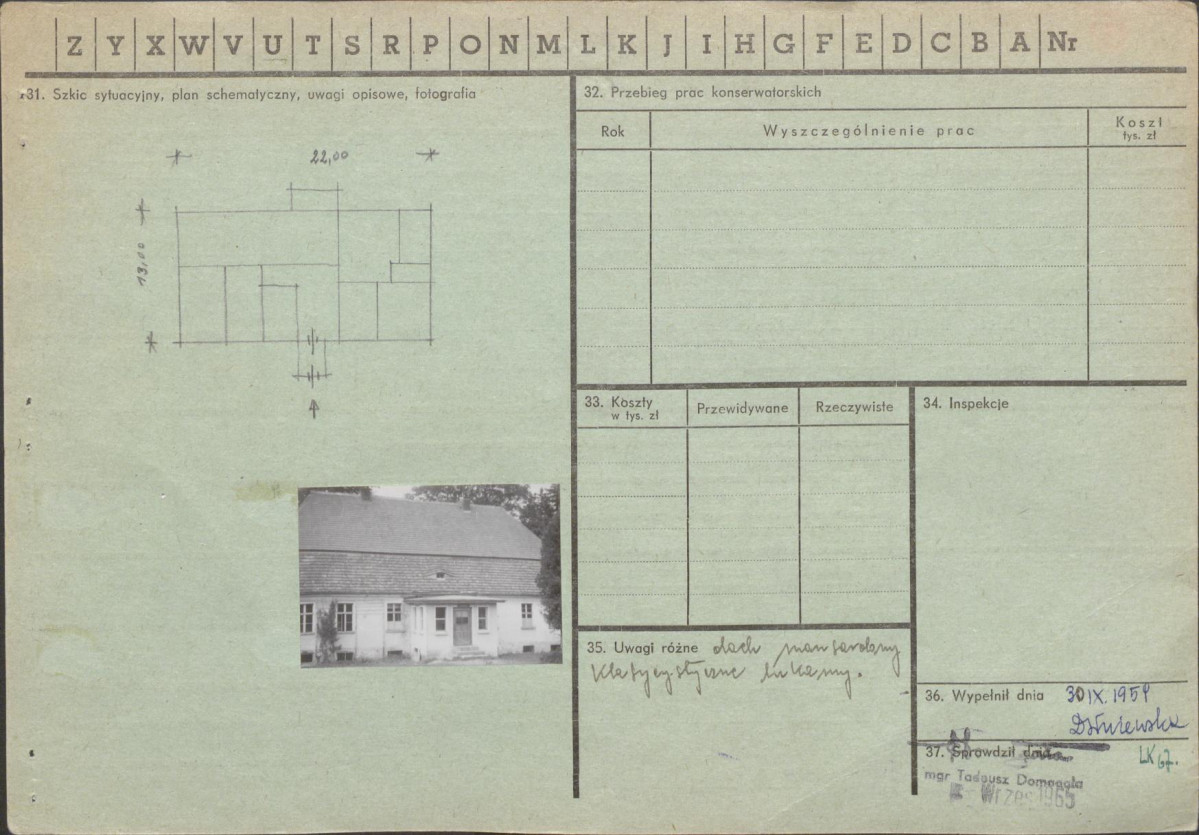 Z Y X W V U T S R P O N M L K J I H G F E D C B A Nr
31. Szkic sytuacyjny, plan schematyczny, uwagi opisowe, fotografia
22,00
13,00
32. Przebieg prac konserwatorskich
Rok Wyszczególnienie prac Koszt
tys. zł
33. Koszty
w tys. zł
Przewidywane Rzeczywiste
34. Inspekcje
35. Uwagi różne dach mansardowy
Klasycystyczne
36. Wypełnił dnia 30 IX. 1959
37. Sprawdził dnia
LK 67.
mgr Tadeusz Domagała
Wrzes. 1965